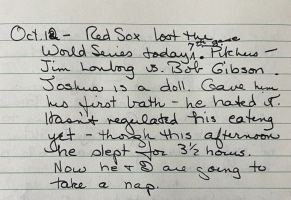 Oct. 12 - Red Sox lost the
World Series today, 7th game. Pitchers -
Jim Lonborg vs. Bob Gibson.
Joshua is a doll. Gave him
his first bath - he hated it.
Hasn't regulated his eating
yet - though this afternoon
he slept for 3½ hours.
Now he + I are going to
take a nap.